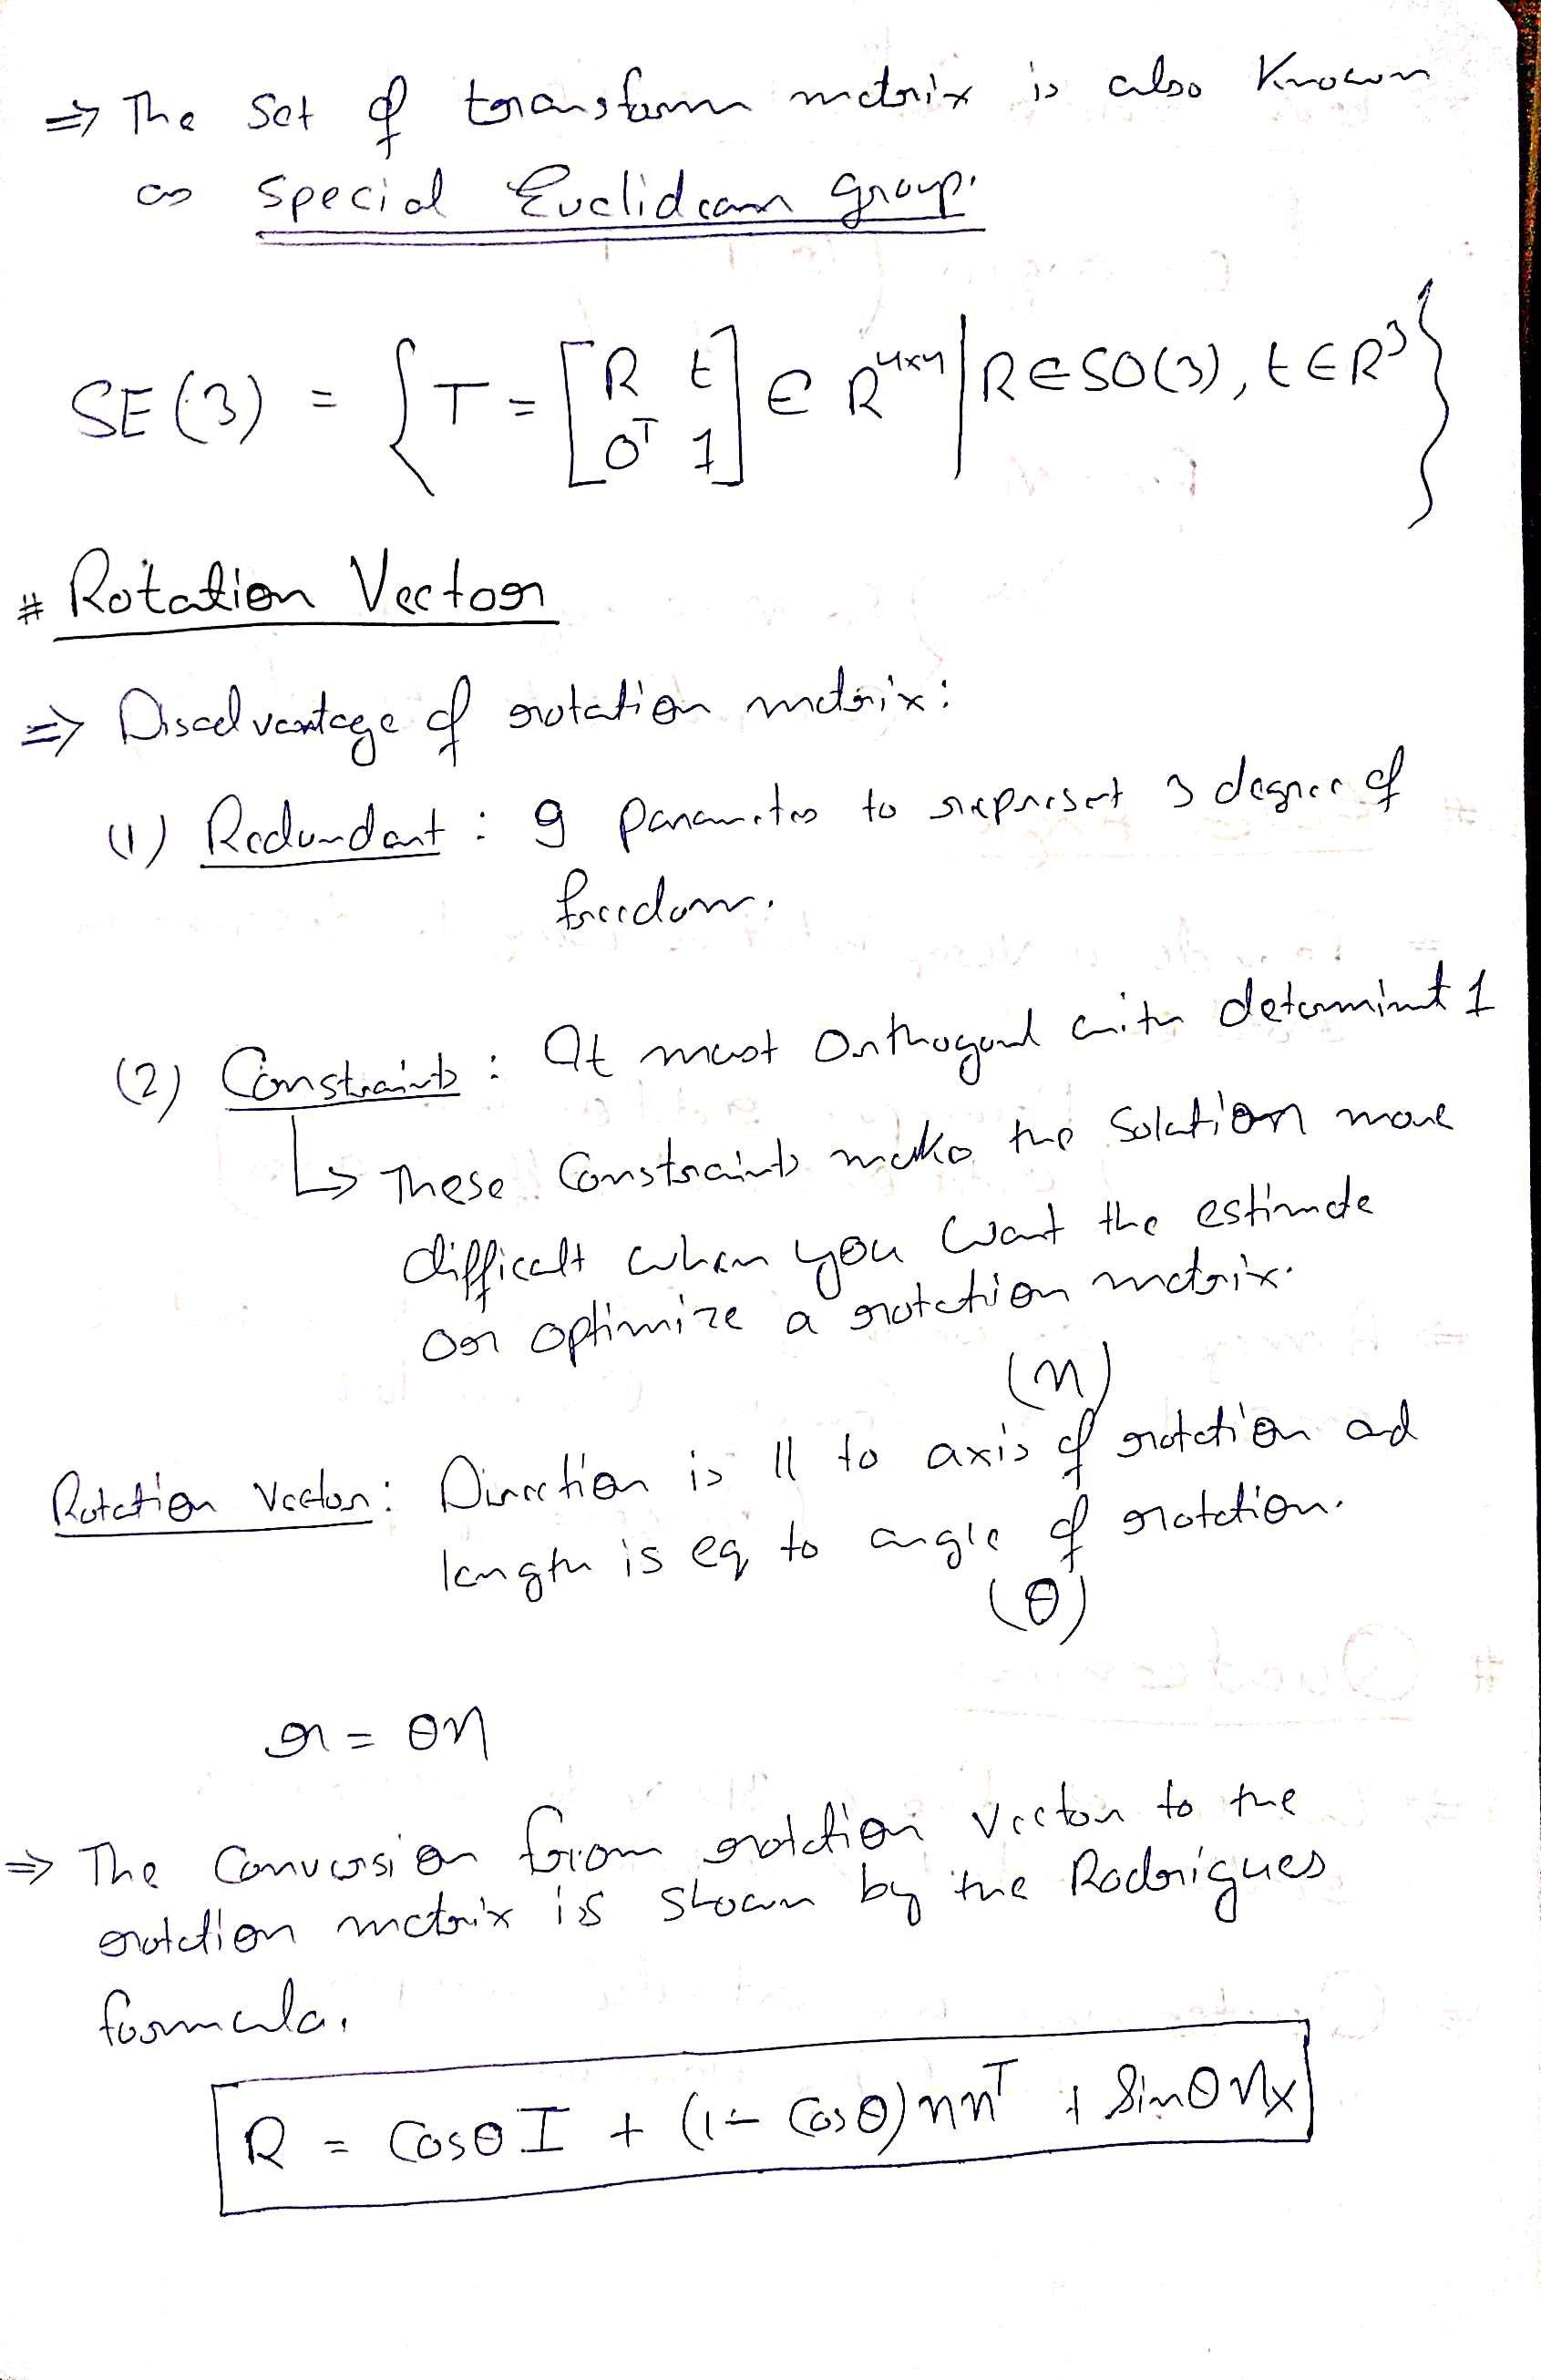 ⇒ The Set of transform matrix is also Known
as Special Euclidean group.
SE(3) = { T = [R t; 0ᵀ 1] ∈ R⁴ˣ⁴ | R ∈ SO(3), t ∈ R³ }
# Rotation Vector
⇒ Disadvantage of rotation matrix:
(1) Redundant : 9 Parameters to represent 3 degree of
freedom.
(2) Constraints : It must Orthogonal with determinant 1
↳ These Constraints make the Solution more
difficult when you want the estimate
or optimize a rotation matrix.
(n)
Rotation Vector: Direction is || to axis of rotation and
length is eq to angle of rotation.
(θ)
r = θn
⇒ The Conversion from rotation Vector to the
rotation matrix is shown by the Rodrigues
formula.
R = Cosθ I + (1 - Cosθ) nnᵀ + Sinθ n×